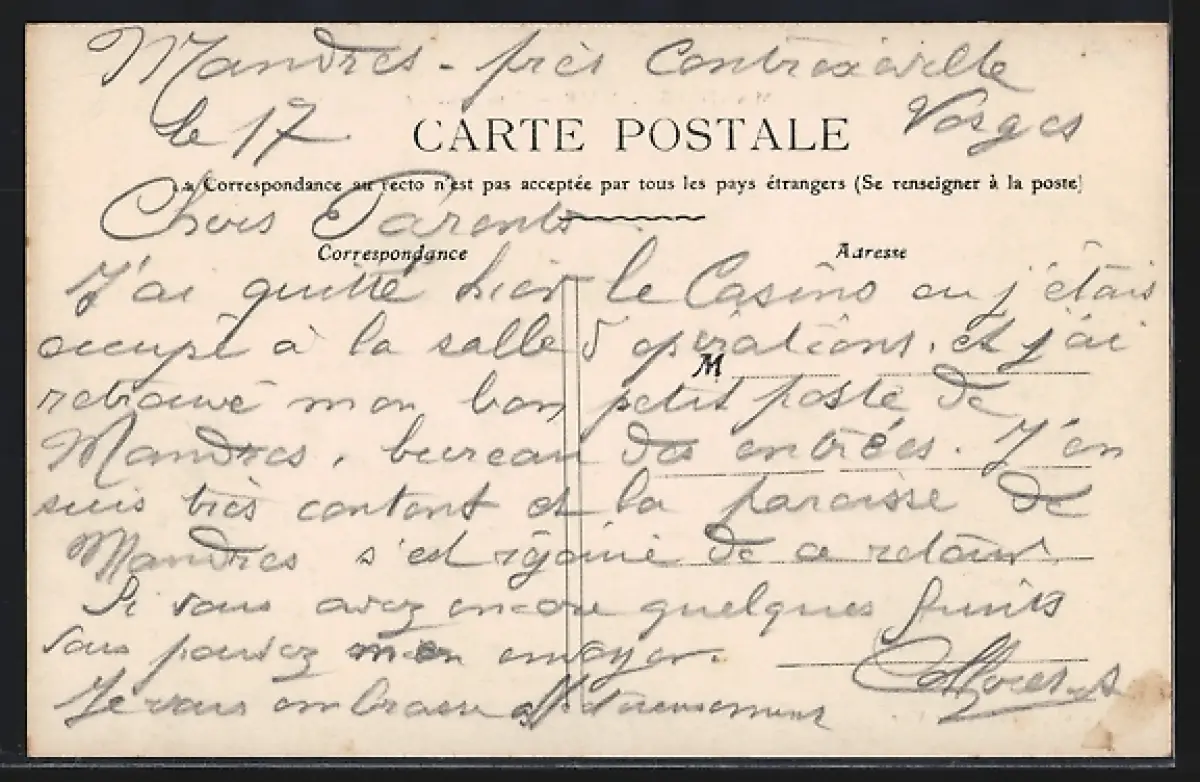 Mandres - près Contrexéville
le 17
Vosges
CARTE POSTALE
La Correspondance au recto n'est pas acceptée par tous les pays étrangers (Se renseigner à la poste)
Chers Parents
Correspondance
Adresse
J'ai quitté hier le Casino ou j'étais
occupé à la salle d'opérations, et j'ai
M
retrouvé mon bon petit poste de
Mandres, bureau des entrées. J'en
suis très content et la paroisse de
Mandres s'est réjouie de ce retour.
Si vous avez encore quelques fruits
vous pouvez m'en envoyer.
Je vous embrasse affectueusement